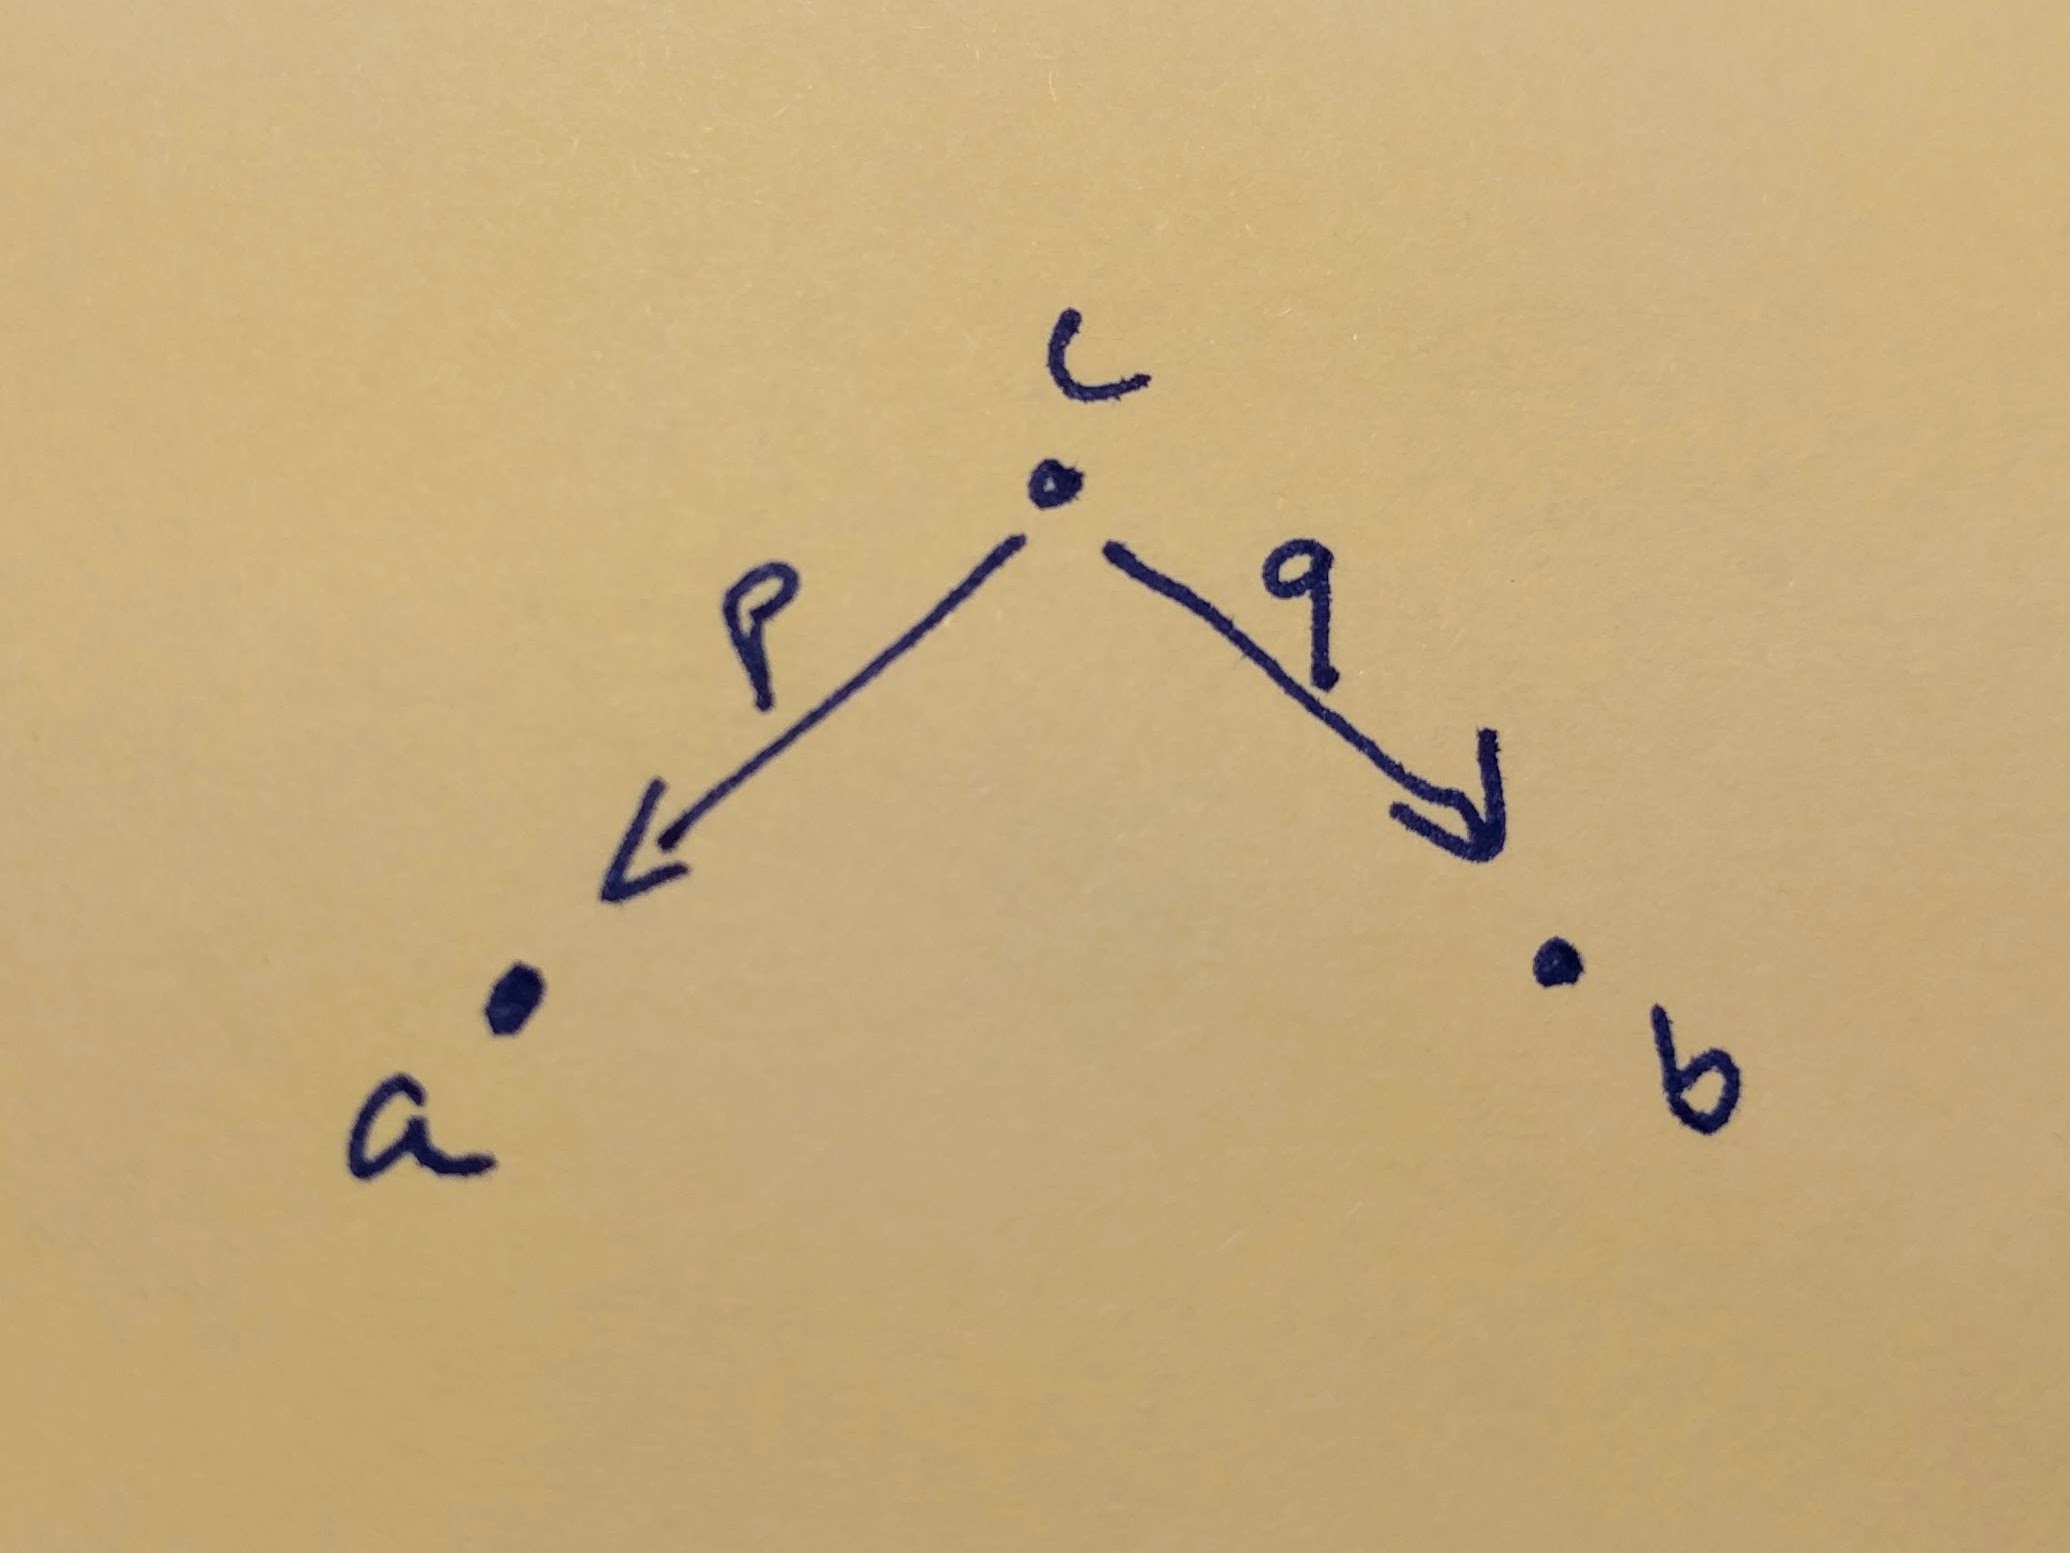 c
p q
a b